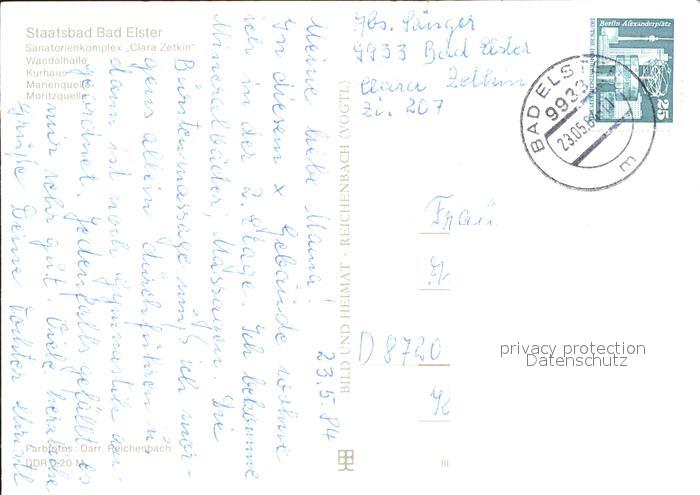 Staatsbad Bad Elster
Sanatorienkomplex „Clara Zetkin"
Wandelhalle
Kurhaus
Marienquelle
Moritzquelle
23.5.84
Meine liebe Mama!
In diesem x Gebäude wohne
ich in der 2. Etage. Ich bekomme
Mineralbäder, Massagen. Die
Bürstenmassage muß ich mor-
gens allein durchführen u.
dann ist noch Gymnastik an-
geordnet. Jedenfalls gefällt es
mir sehr gut. Viele herzliche
Grüße Deine Tochter
Farbfotos: Darr, Reichenbach
DDR 0,20 M
BILD UND HEIMAT · REICHENBACH (VOGTL)
III
Abs. Sänger
9933 Bad Elster
Clara Zetkin
Zi. 207
Berlin, Alexanderplatz
25
BAD ELSTER
9933
23.05.84
m
Frau
D 8720
privacy protection
Datenschutz